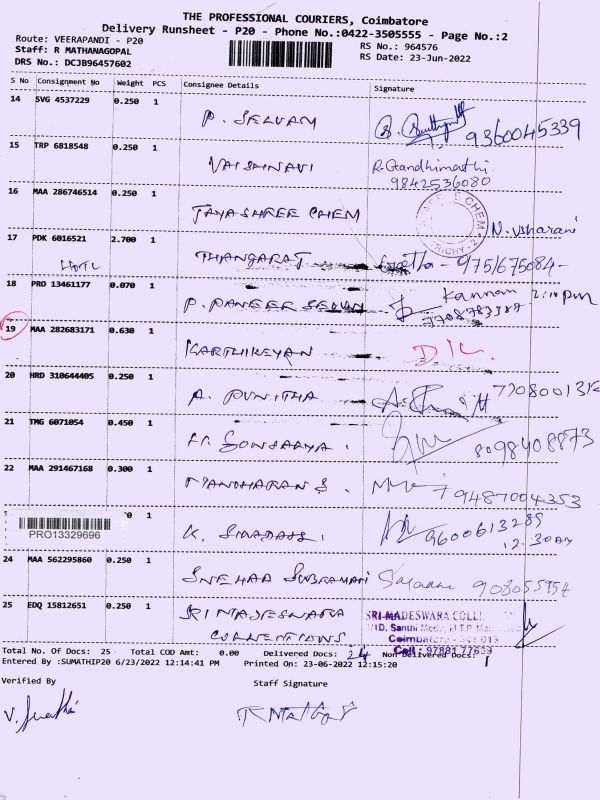 THE PROFESSIONAL COURIERS, Coimbatore
Delivery Runsheet - P20 - Phone No.:0422-3505555 - Page No.:2
Route: VEERAPANDI - P20
Staff: R MATHANAGOPAL
DRS No.: DCJB96457602
RS No.: 964576
RS Date: 23-Jun-2022
S No Consignment No Weight PCS Consignee Details Signature
14 SVG 4537229 0.250 1
P. SELVAM 9360045339
15 TRP 6818548 0.250 1
VAISHNAVI R. Gandhimathi
9842536080
16 MAA 286746514 0.250 1
JAYASHREE CHEM N. Usharani
TRICHY-2
17 PDK 6016521 2.700 1
THANGARAJ
18 PRO 13461177 0.070 1
P. PANEER SELVAM Kannan 2:10 pm
19 MAA 282683171 0.630 1
KARTHIKEYAN D/L.
20 HRD 310644405 0.250 1
A. PUNITHA
21 TMG 6071054 0.450 1
8098408873
22 MAA 291467168 0.300 1
MANOHARAN S. 9487004353
0 1
PRO13329696
K. 9600613289
12.30
24 MAA 562295860 0.250 1
SNEHAA SUBRAMANI
25 EDQ 15812651 0.250 1
SRI RAJESWARA
SRI-MADESWARA
Coimbatore - 641 019
Cell : 97881 77639
Total No. Of Docs: 25 Total COD Amt: 0.00 Delivered Docs: 24 Non Delivered Docs: 1
Entered By :SUMATHIP20 6/23/2022 12:14:41 PM Printed On: 23-06-2022 12:15:20
Verified By Staff Signature